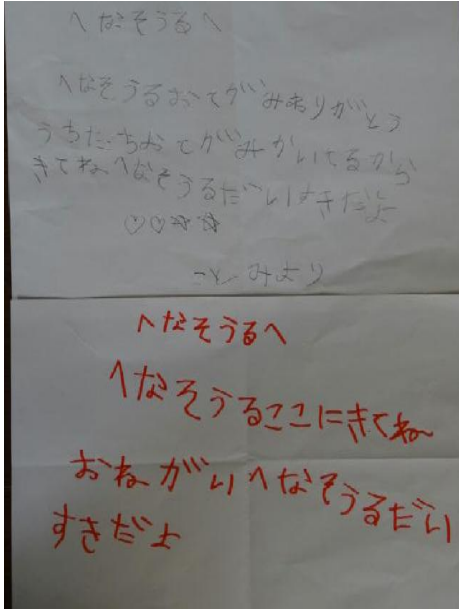 へなそうるへ
へなそうるおてがみありがとう
うちたちおてがみかいてるから
きてねへなそうるだいすきだよ
♡♡☆☆
ことみより
へなそうるへ
へなそうるここにきてね
おねがいへなそうるだい
すきだよ